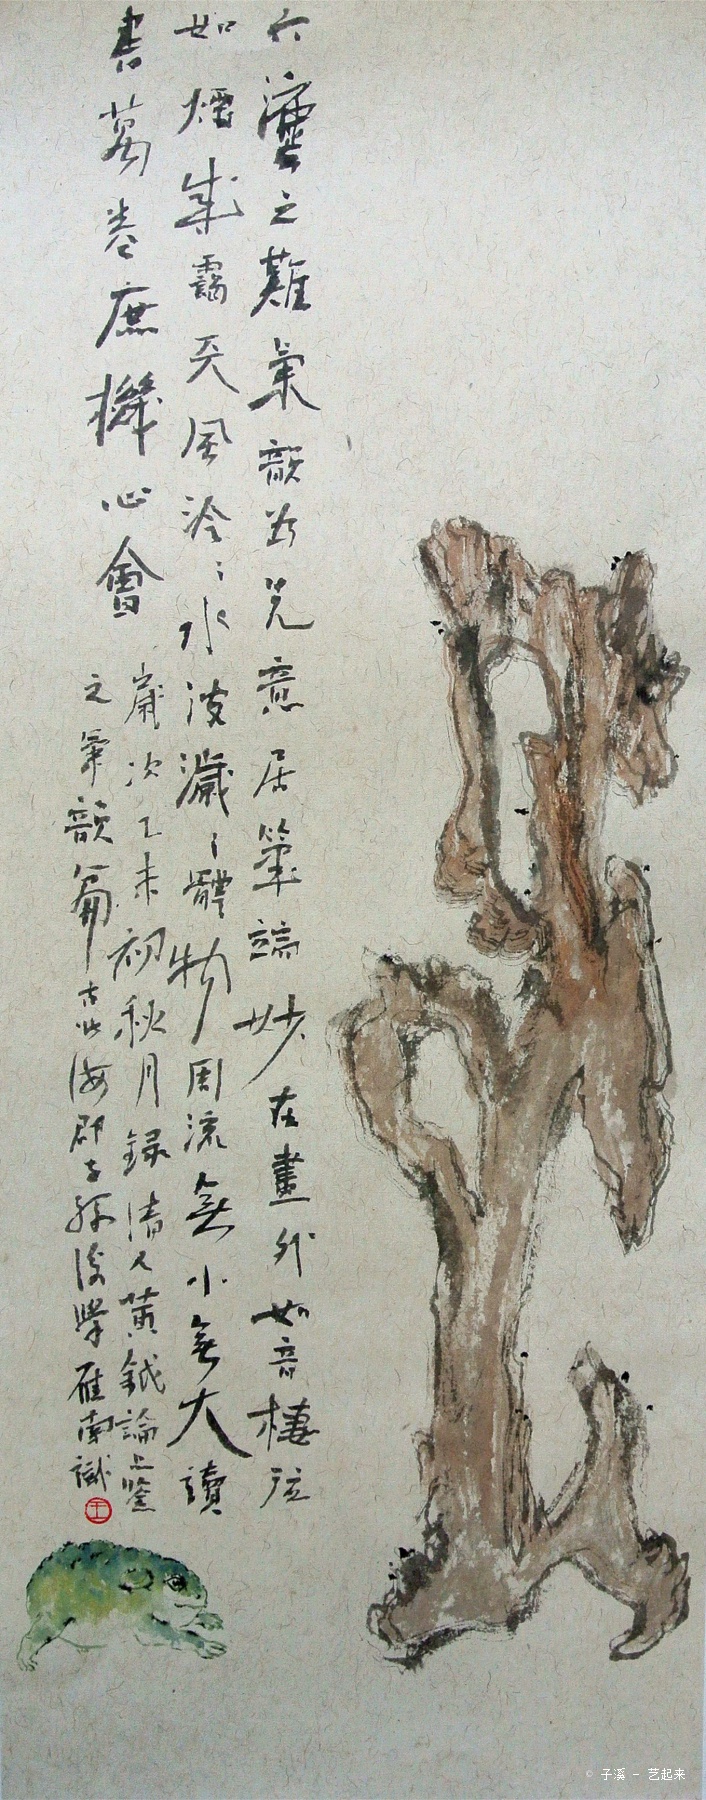 六灋之難氣韻為意居筆端妙在畫外如音棲弦
如煙成靄天風泠〻水波濊〻體物周流無小無大讀
書萬卷庶機心會
歲次乙未初秋月録清人黃鉞論上鑒
之氣韻篇古北海郡子孫後學雁南識
王
© 子溪 - 艺起来